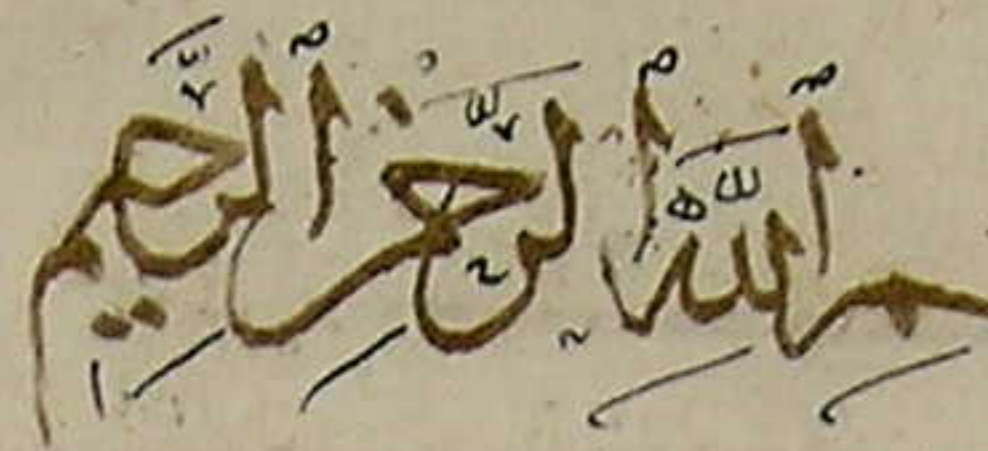 ـمِ ٱللَّهِ ٱلرَّحْمَٰنِ ٱلرَّحِيمِ